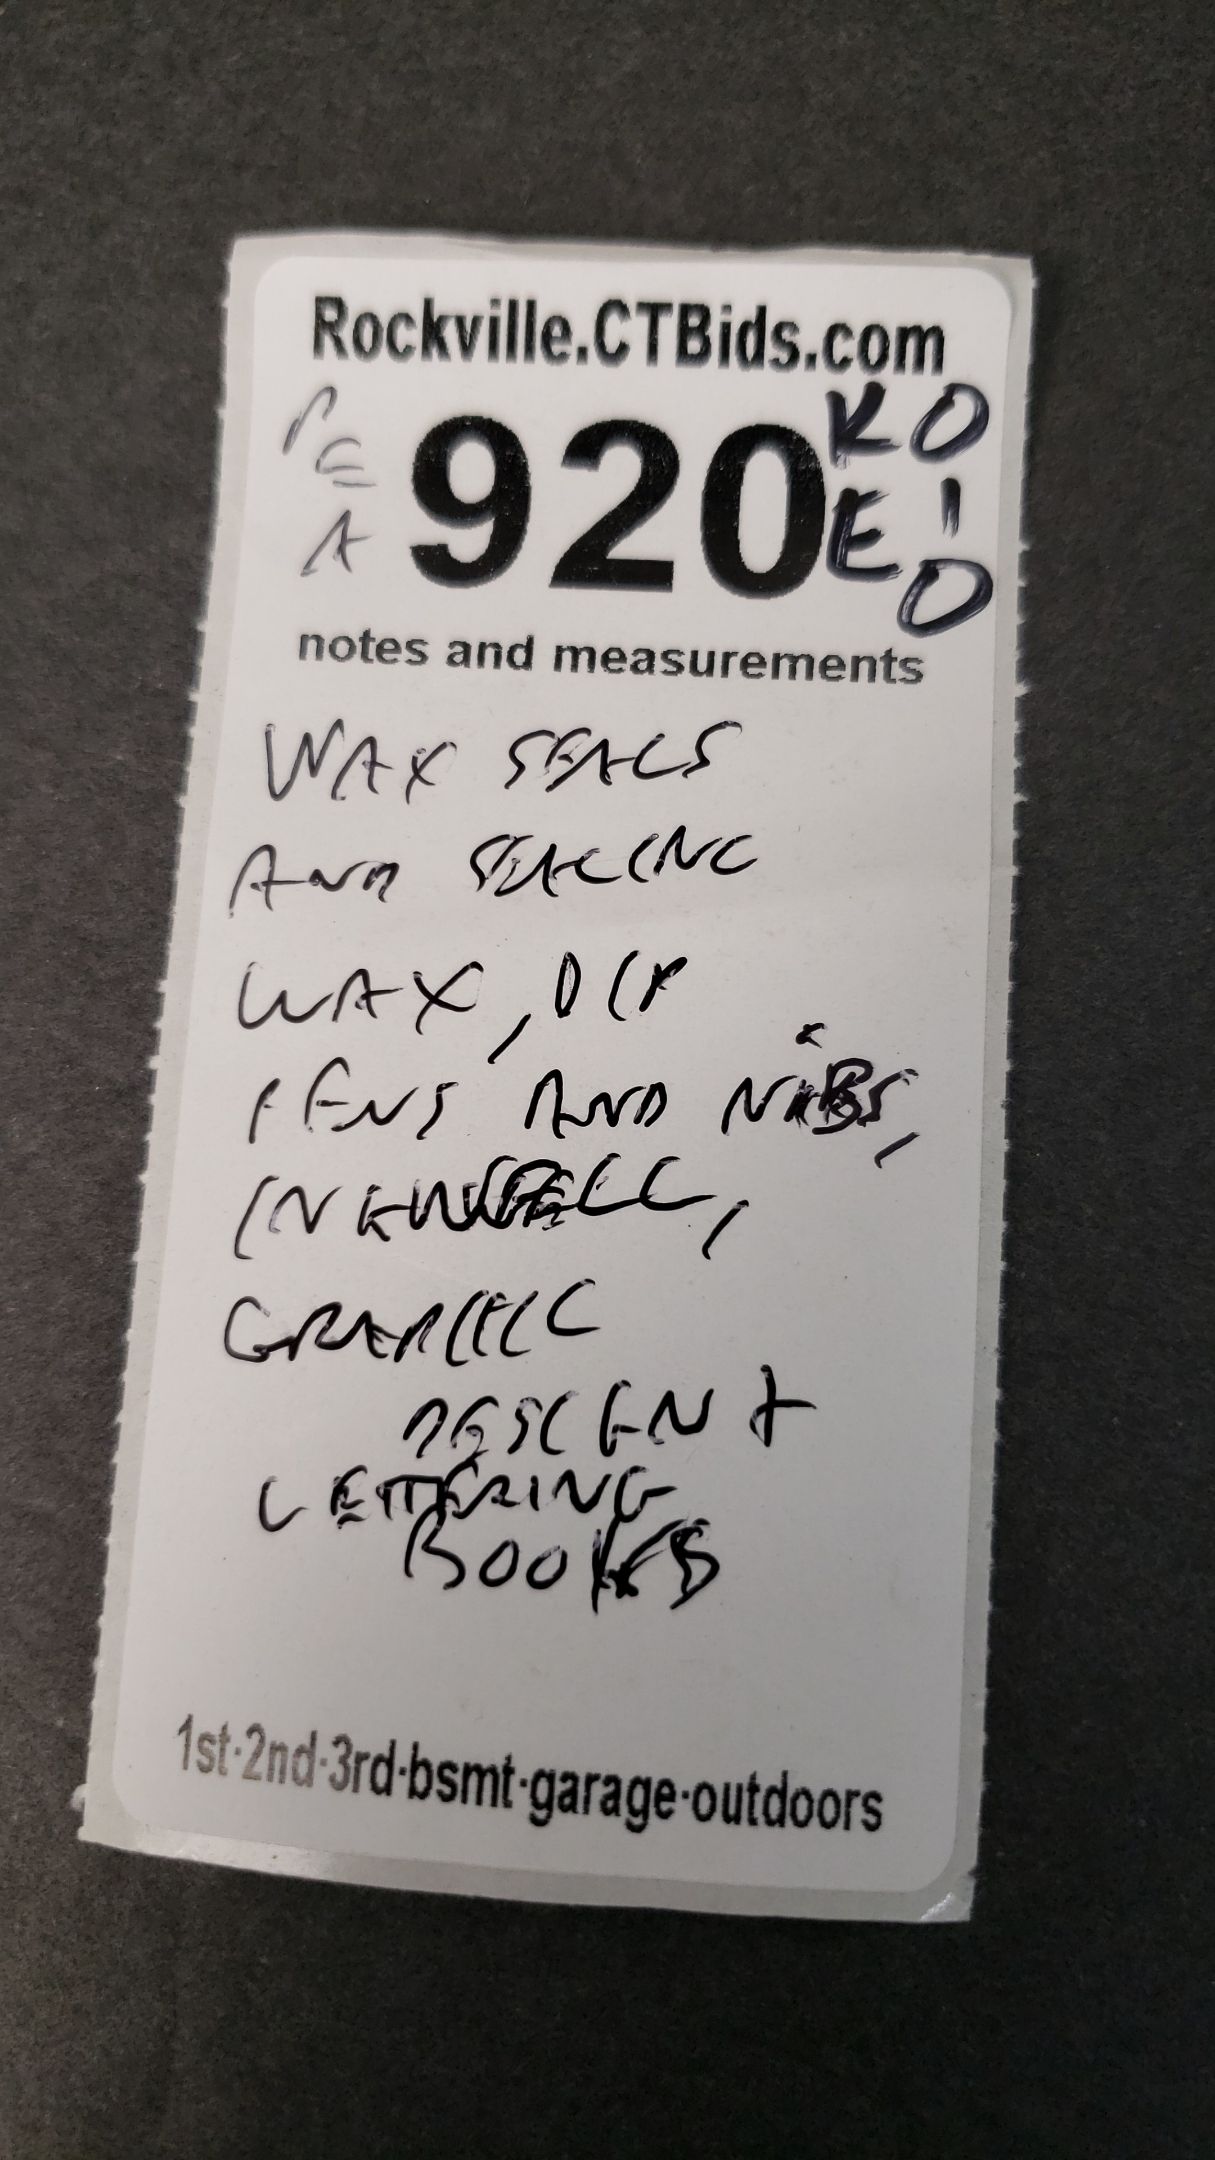 Rockville.CTBids.com
920
K O
E 1
O
notes and measurements
WAX SEALS
AND SEALING
WAX, DIP
PENS AND NIBS,
INKWELL,
GRAPHIC
DESIGN &
LETTERING
BOOKS
1st·2nd·3rd·bsmt·garage·outdoors